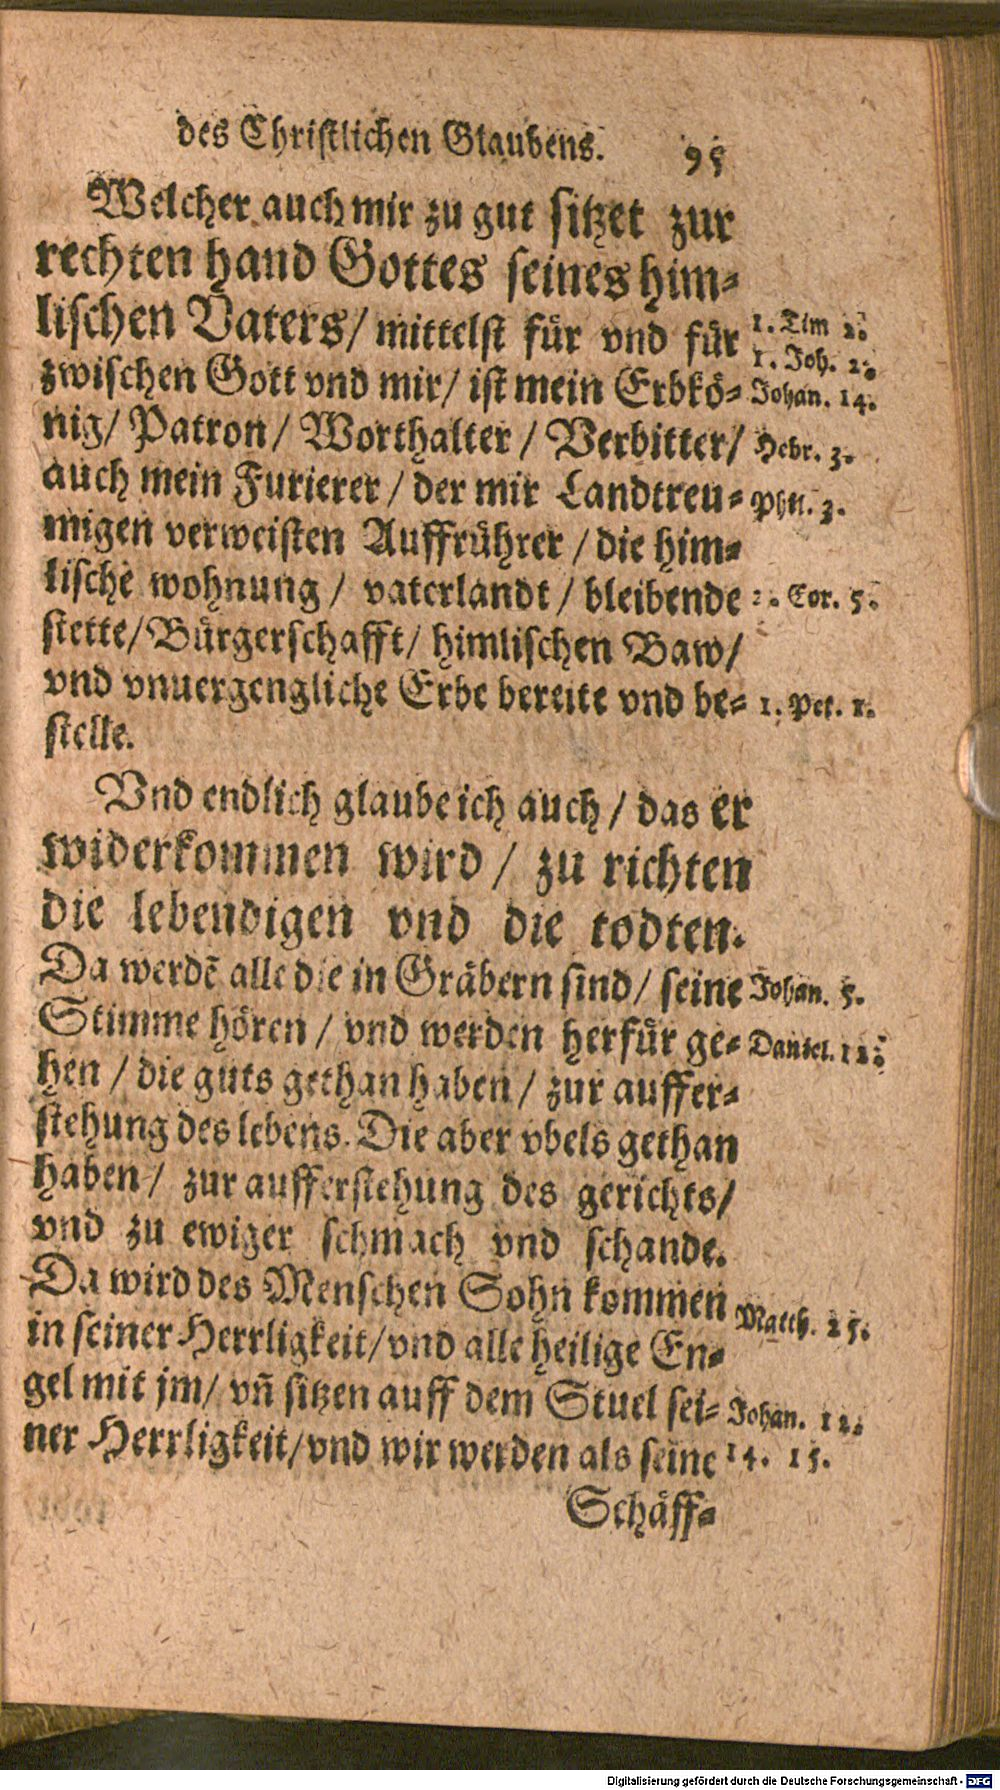 des Christlichen Glaubens. 95
Welcher auch mir zu gut sitzet zur
rechten hand Gottes seines him-
lischen Vaters/ mittelst fuͤr vnd fuͤr
1. Tim 2.
1. Joh. 2.
zwischen Gott vnd mir/ ist mein Erbkoͤ-
Johan. 14.
nig/ Patron/ Worthalter/ Verbitter/
Hebr. 3.
auch mein Furierer/ der mir Landtreu-
Phil. 3.
migen verweisten Auffruͤhrer/ die him-
lische wohnung/ vaterlandt/ bleibende
2. Cor. 5.
stette/ Buͤrgerschafft/ himlischen Baw/
vnd vnuergengliche Erbe bereite vnd be-
1. Pet. 1.
stelle.
Vnd endlich glaube ich auch/ das er
widerkommen wird/ zu richten
die lebendigen vnd die todten.
Da werdē alle die in Graͤbern sind/ seine
Johan. 5.
Stimme hoͤren/ vnd werden herfuͤr ge-
Daniel. 12.
hen/ die guts gethan haben/ zur auffer-
stehung des lebens. Die aber vbels gethan
haben/ zur aufferstehung des gerichts/
vnd zu ewiger schmach vnd schande.
Da wird des Menschen Sohn kommen
Matth. 25.
in seiner Herrligkeit/ vnd alle heilige En-
gel mit jm/ vn̄ sitzen auff dem Stuel sei-
Johan. 12.
ner Herrligkeit/ vnd wir werden als seine
14. 15.
Schaͤff-
Digitalisierung gefördert durch die Deutsche Forschungsgemeinschaft - DFG